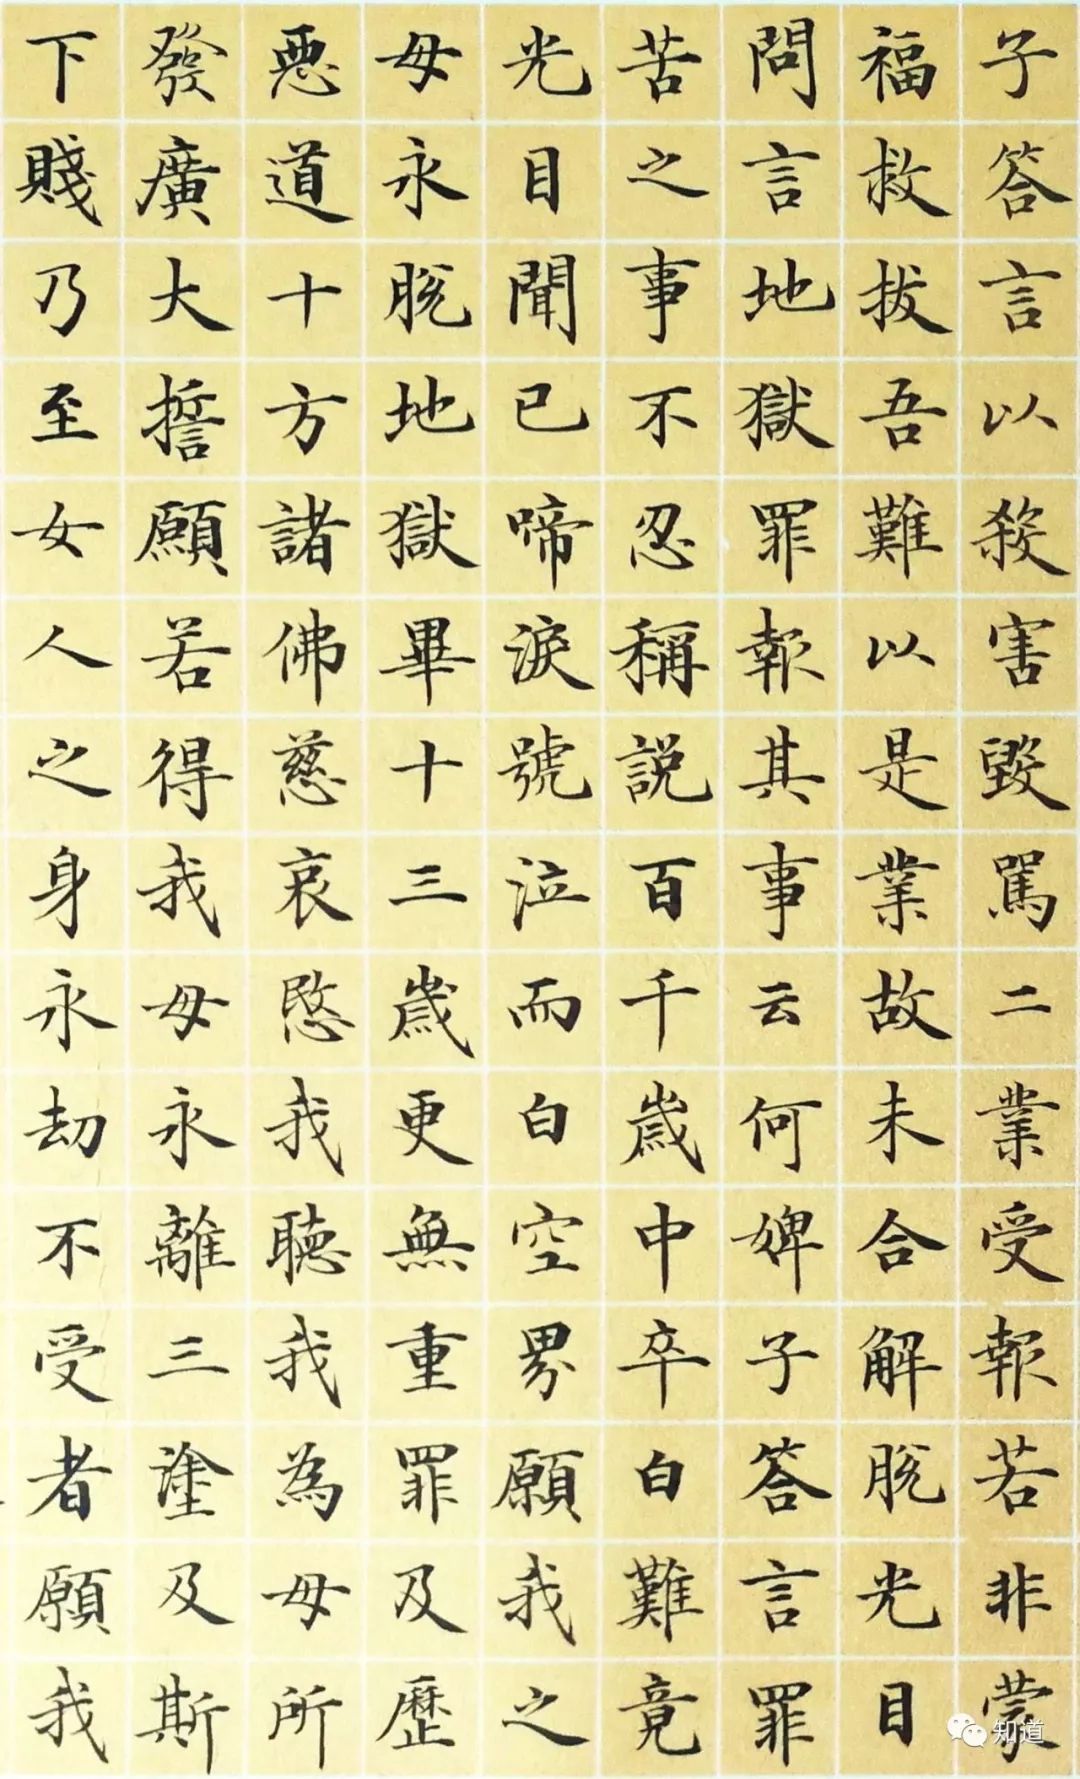 子答言以殺害毀駡二業受報若非蒙
福救拔吾難以是業故未合解脫光目
問言地獄罪報其事云何婢子答言罪
苦之事不忍稱說百千歲中卒白難竟
光目聞已啼淚號泣而白空界願我之
母永脫地獄畢十三歲更無重罪及歷
惡道十方諸佛慈哀愍我聽我為母所
發廣大誓願若得我母永離三塗及斯
下賤乃至女人之身永劫不受者願我
知道